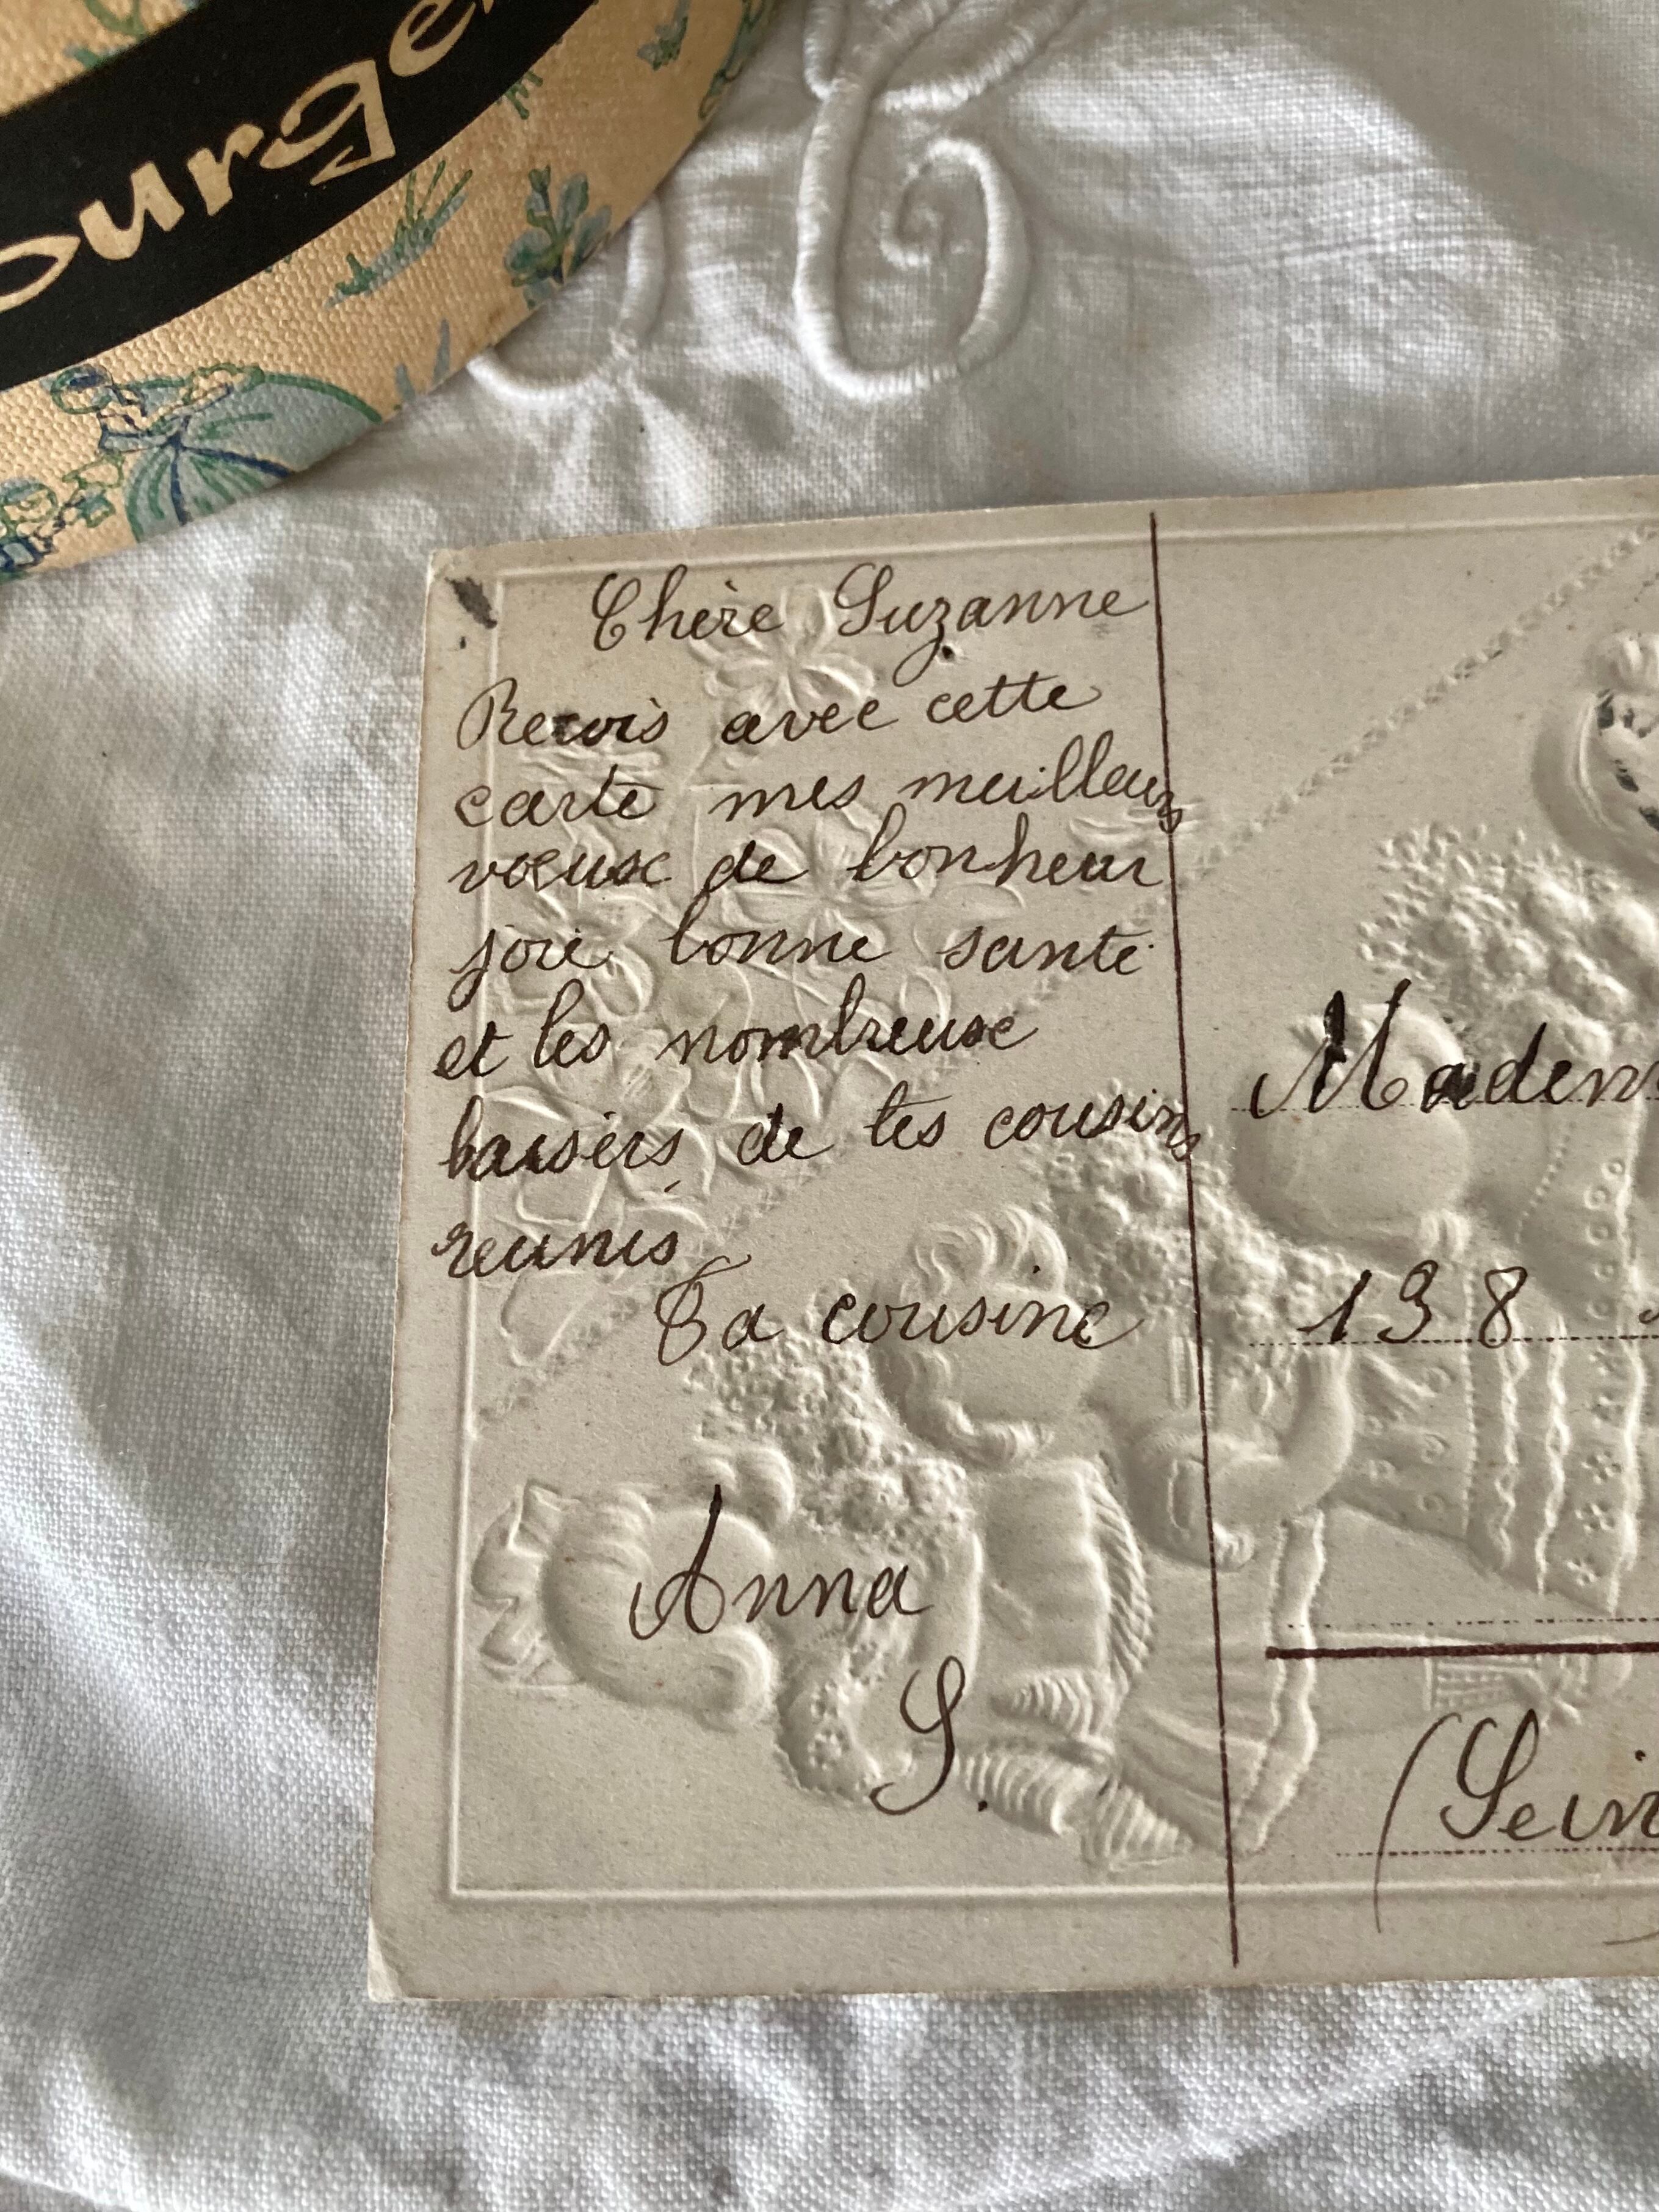 ourge
Chère Suzanne
Recois avec cette
carte mes meilleurs
voeux de bonheur
joie bonne santé
et les nombreux
baisers de tes cousins
reunis
Ta cousine
Anna
S.
Madem
138
(Sein